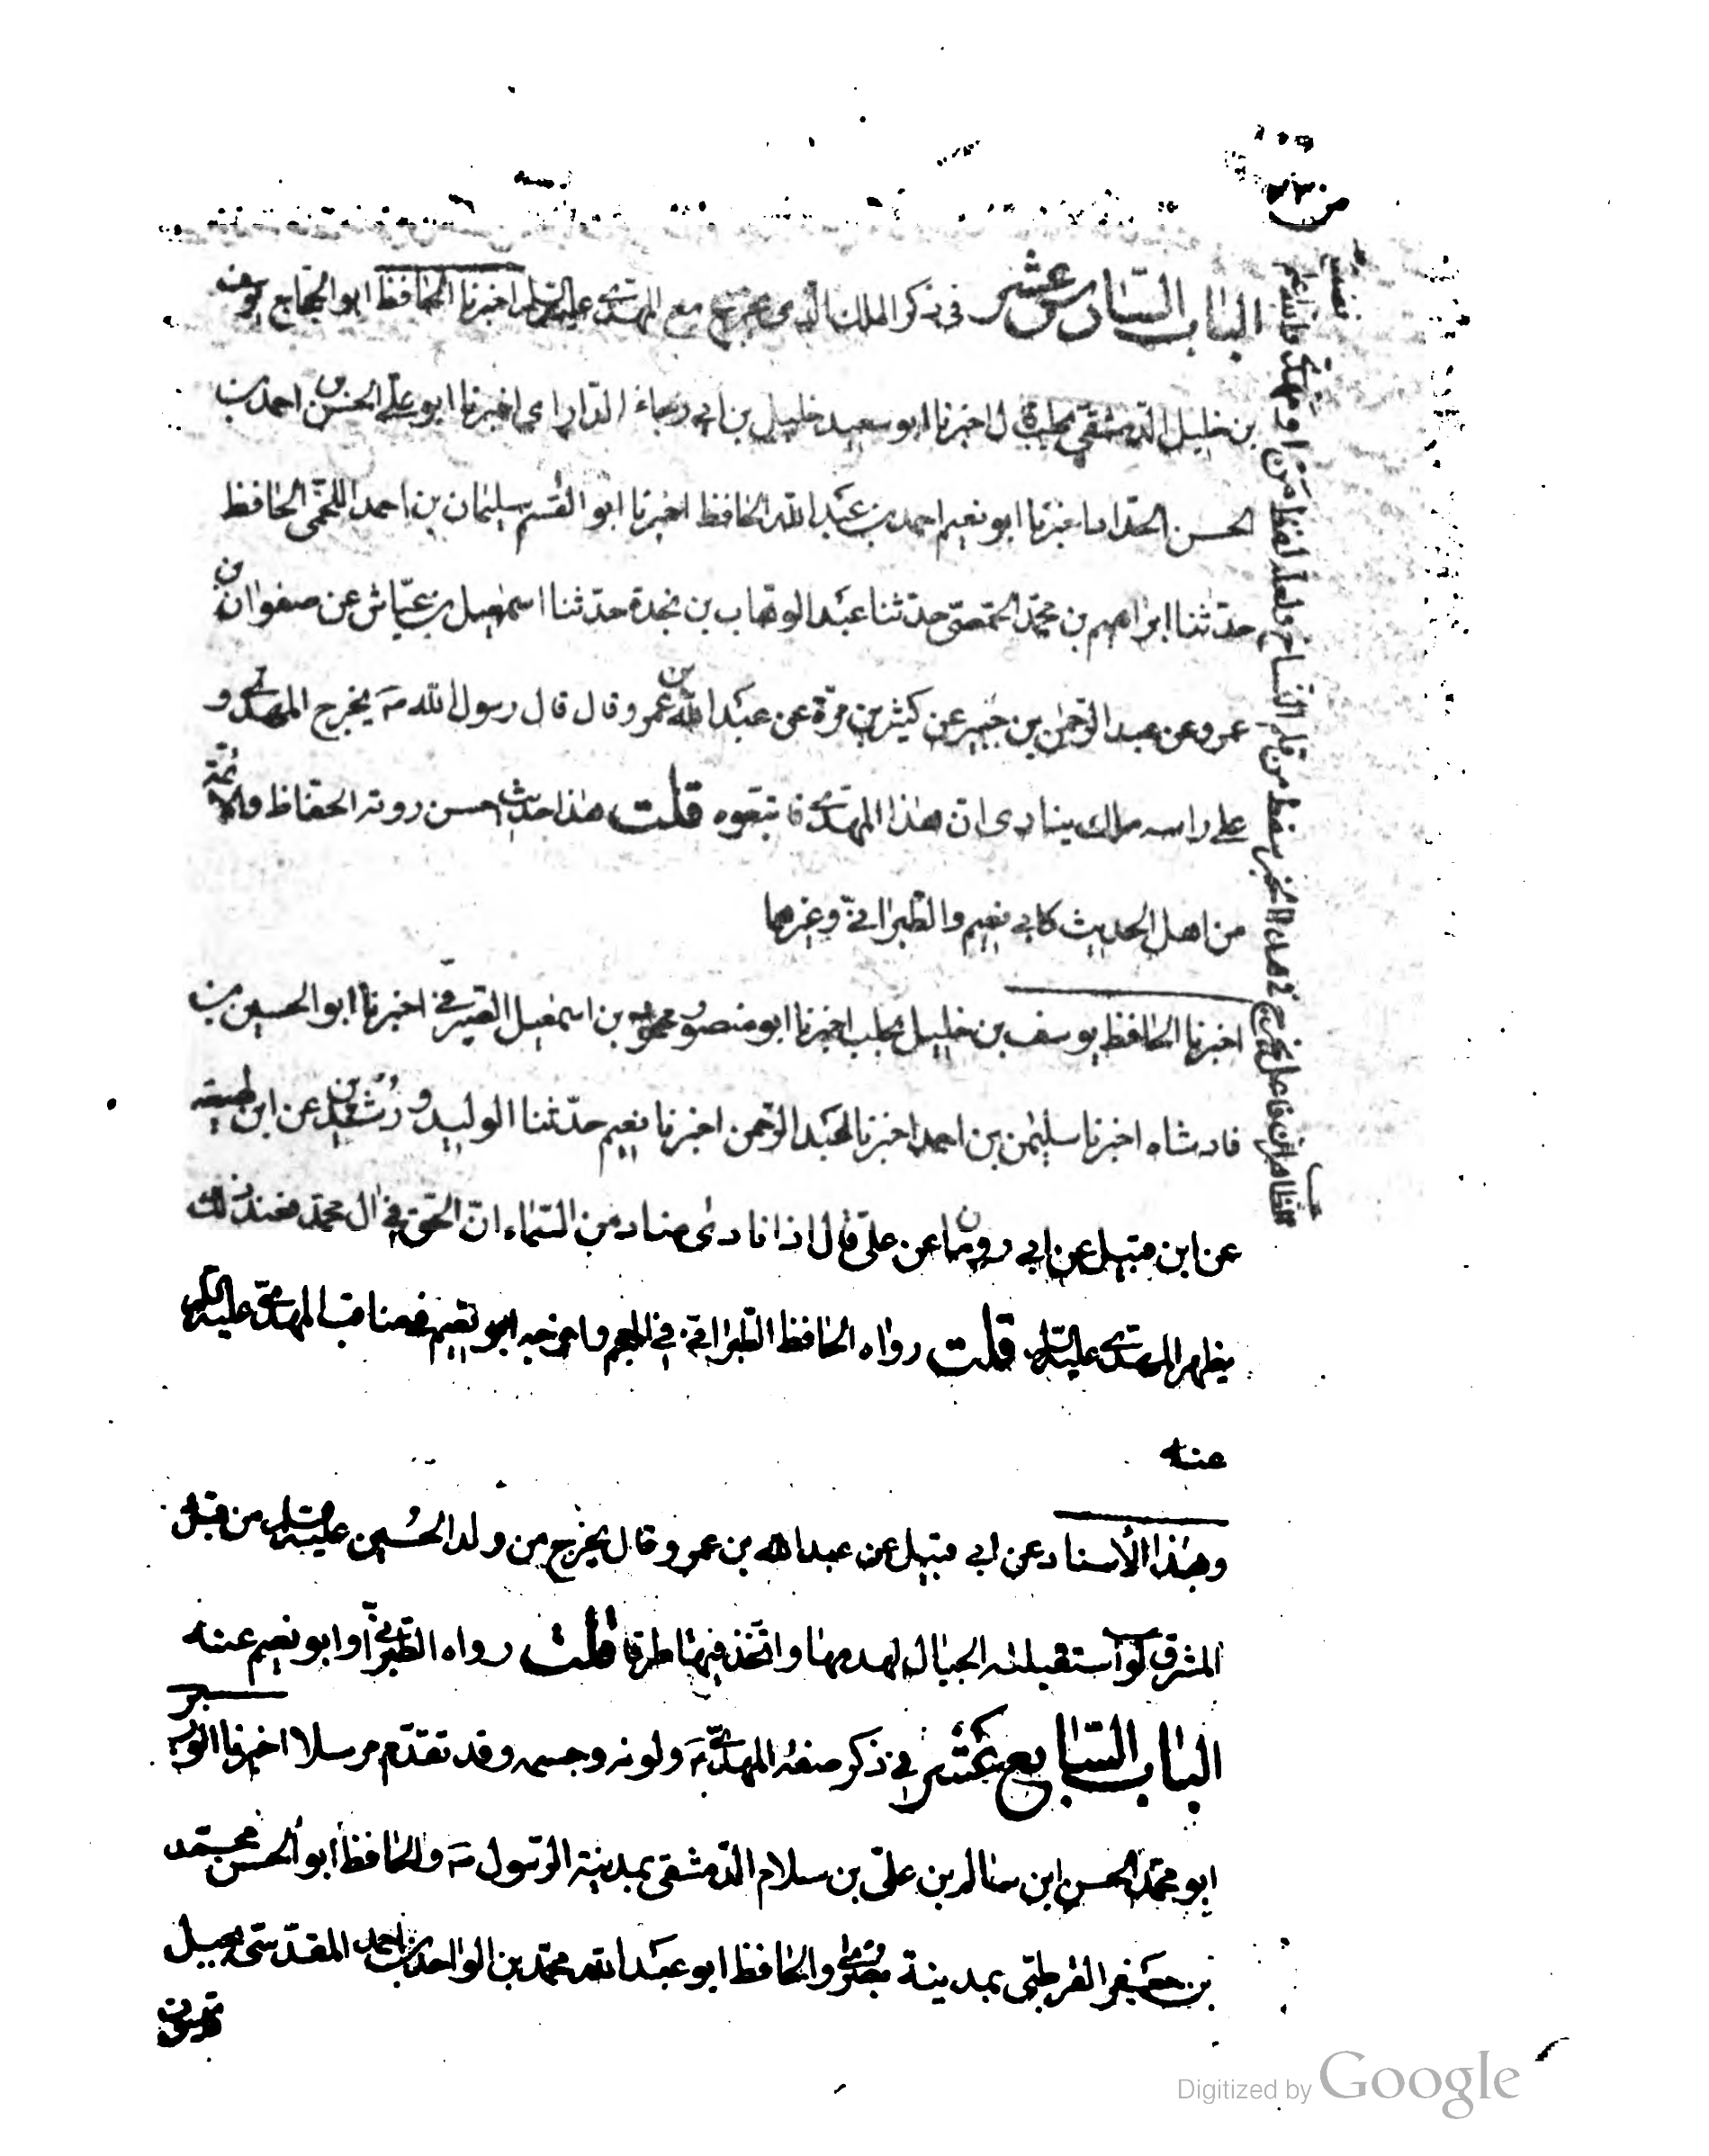 الباب السادس عشر في ذكر الملك الذي يخرج مع المهدي عليه السلم اخبرنا الحافظ ابو الحجاج يوسف
بن خليل الدمشقي بحلب قال اخبرنا ابو سعيد خليل بن ابي رجاء الداراني اخبرنا ابو علي الحسن بن احمد بن
الحسن الحداد اخبرنا ابو نعيم احمد بن عبد الله الحافظ اخبرنا ابو القسم سليمان بن احمد اللخمي الحافظ
حدثنا ابراهيم بن محمد الحمصي حدثنا عبد الوهاب بن نجدة حدثنا اسمعيل بن عياش عن صفوان بن
عمرو عن عبد الرحمن بن جبير عن كثير بن مرة عن عبد الله بن عمرو قال قال رسول الله ص يخرج المهدي و
على راسه ملك ينادى ان هذا المهدي فاتبعوه قلت هذا حديث حسن روته الحفاظ والائمة
من اهل الحديث كابي نعيم والطبراني وغيرهما
اخبرنا الحافظ يوسف بن خليل بحلب اخبرنا ابو منصور محمود بن اسمعيل الصيرفي اخبرنا ابو الحسين بن
فادشاه اخبرنا سليمن بن احمد اخبرنا عبد الرحمن اخبرنا نعيم حدثنا الوليد ورشدين عن ابن لهيعة
عن ابن قبيل عن ابي رومان عن علي قال اذا نادى مناد من السماء ان الحق في ال محمد فعند ذلك
يظهر المهدي عليه السلم قلت رواه الحافظ الطبراني في المعجم واخرجه ابو نعيم في مناقب المهدي عليه السلم
عنه
وبهذا الاسناد عن ابي قبيل عن عبد الله بن عمرو قال يخرج من ولد الحسين عليه السلم من قبل
المشرق لو استقبلته الجبال لهدمها واتخذ فيها طرقا قلت رواه الطبراني وابو نعيم عنه
الباب السابع عشر في ذكر صفة المهدي ع ولونه وجسمه وقد تقدم مرسلا اخبرنا
ابو محمد الحسن ابن سالم بن علي بن سلام الدمشقي بمدينة الرسول ص والحافظ ابو الحسن محمد
بن جعفر القرطبي بمدينة بصرى والحافظ ابو عبد الله محمد بن الواحد بن احمد المقدسي بجبل
من قلم النساخ ولعله لفظ
Digitized by Google